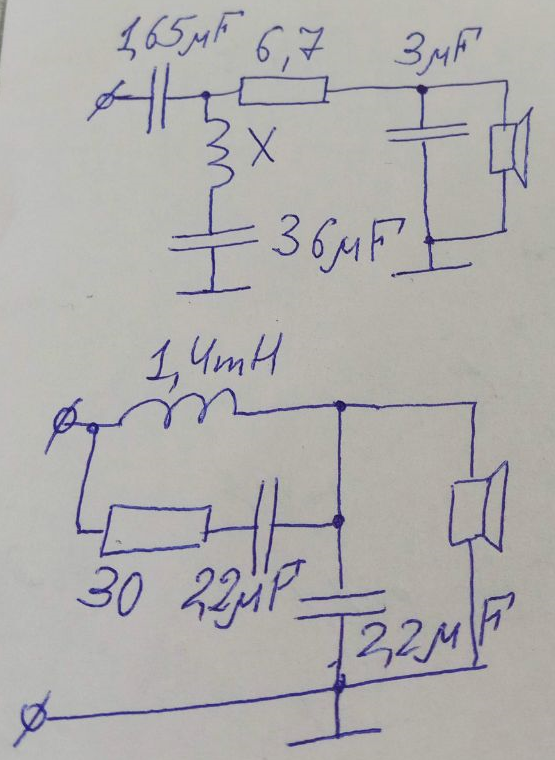 1,65μF
6,7
3μF
X
36μF
1,4mH
30
2,2μF
2,2μF